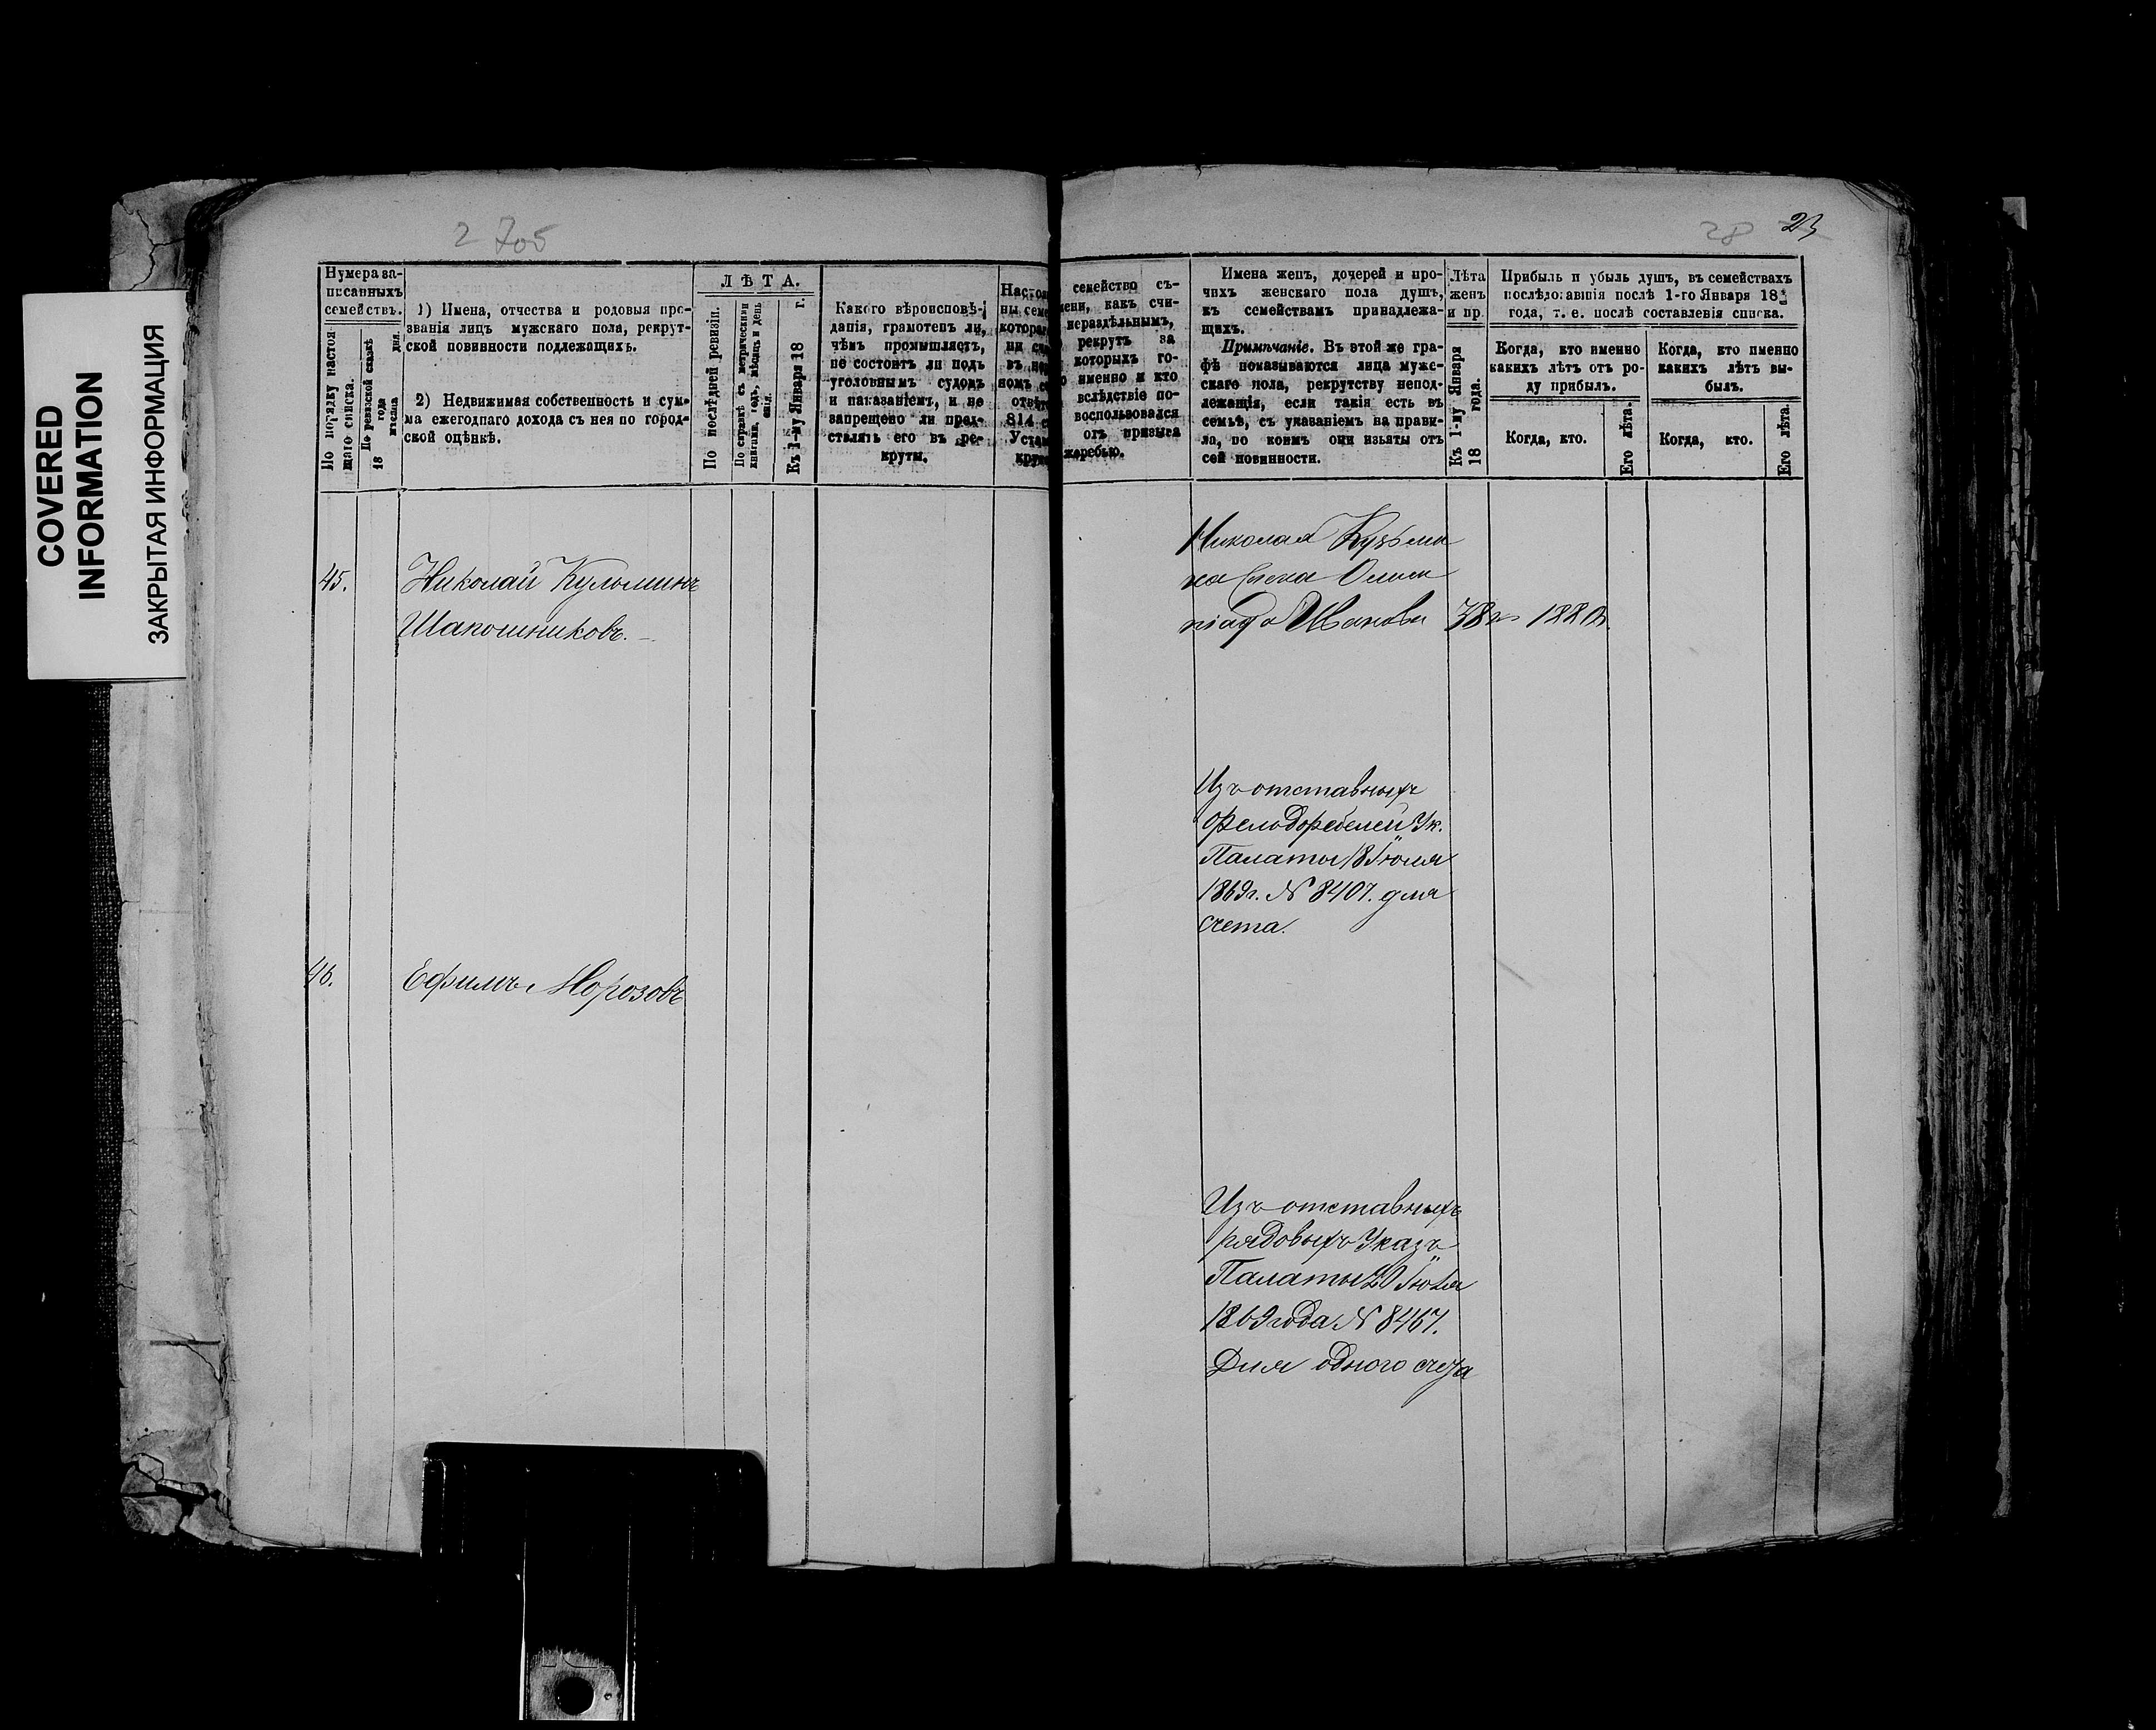 COVERED
INFORMATION
ЗАКРЫТАЯ ИНФОРМАЦИЯ
2 705
Нумера за-
писанныхъ
семействъ.
По порядку настоя-
щаго списка.
По ревизской сказкѣ
18 года
мѣсяца дня.
1) Имена, отчества и родовыя про-
званія лицъ мужскаго пола, рекрут-
ской повинности подлежащихъ.
2) Недвижимая собственность и сум-
ма ежегоднаго дохода съ нея по город-
ской оцѣнкѣ.
ЛѢТА.
По послѣдней ревизіи.
По справкѣ съ метрическими
книгами, годъ, мѣсяцъ и день
Къ 1-му Января 18 г.
Какого вѣроисповѣ-
данія, грамотенъ ли,
чѣмъ промышляетъ,
не состоитъ ли подъ
уголовнымъ судомъ
и наказаніемъ, и не
запрещено ли пред-
ставлять его въ ре-
круты.
45.
Николай Кузьминъ
Шапошниковъ.
46.
Ефимъ Морозовъ
28 23
семейство съ-
мени, какъ счи-
нераздѣльнымъ,
рекрутъ за
которыхъ го-
именно и кто
вслѣдствіе по-
воспользовался
отъ призыва
жеребью.
Имена женъ, дочерей и про-
чихъ женскаго пола душъ,
къ семействамъ принадлежа-
щихъ.
Примѣчаніе. Въ этой же гра-
фѣ показываются лица муже-
скаго пола, рекрутству непод-
лежащія, если такія есть въ
семьѣ, съ указаніемъ на прави-
ла, по коимъ они изъяты отъ
сей повинности.
Лѣта
женъ
и пр.
Къ 1-му Января
18 года.
Прибыль и убыль душъ, въ семействахъ
послѣдовавшія послѣ 1-го Января 18
года, т. е. послѣ составленія списка.
Когда, кто именно
какихъ лѣтъ отъ ро-
ду прибылъ.
Когда, кто именно
какихъ лѣтъ вы-
былъ.
Когда, кто.
Его лѣта.
Когда, кто.
Его лѣта.
Николая Кузьми
на жена Олим
піада Иванова 38 1880
Изъ отставныхъ
Фельдфебелей Ук.
Палаты 18 Іюля
1869г. № 8407. для
счета.
Изъ отставныхъ
рядовыхъ Указъ
Палаты 20 Іюля
1869 года № 8467.
Для одного счета